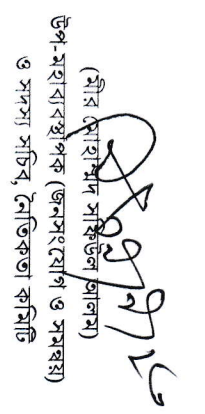 (মীর মোহাম্মদ সাইফুল আলম)
উপ-মহাব্যবস্থাপক (জনসংযোগ ও সমন্বয়)
ও সদস্য সচিব, নৈতিকতা কমিটি